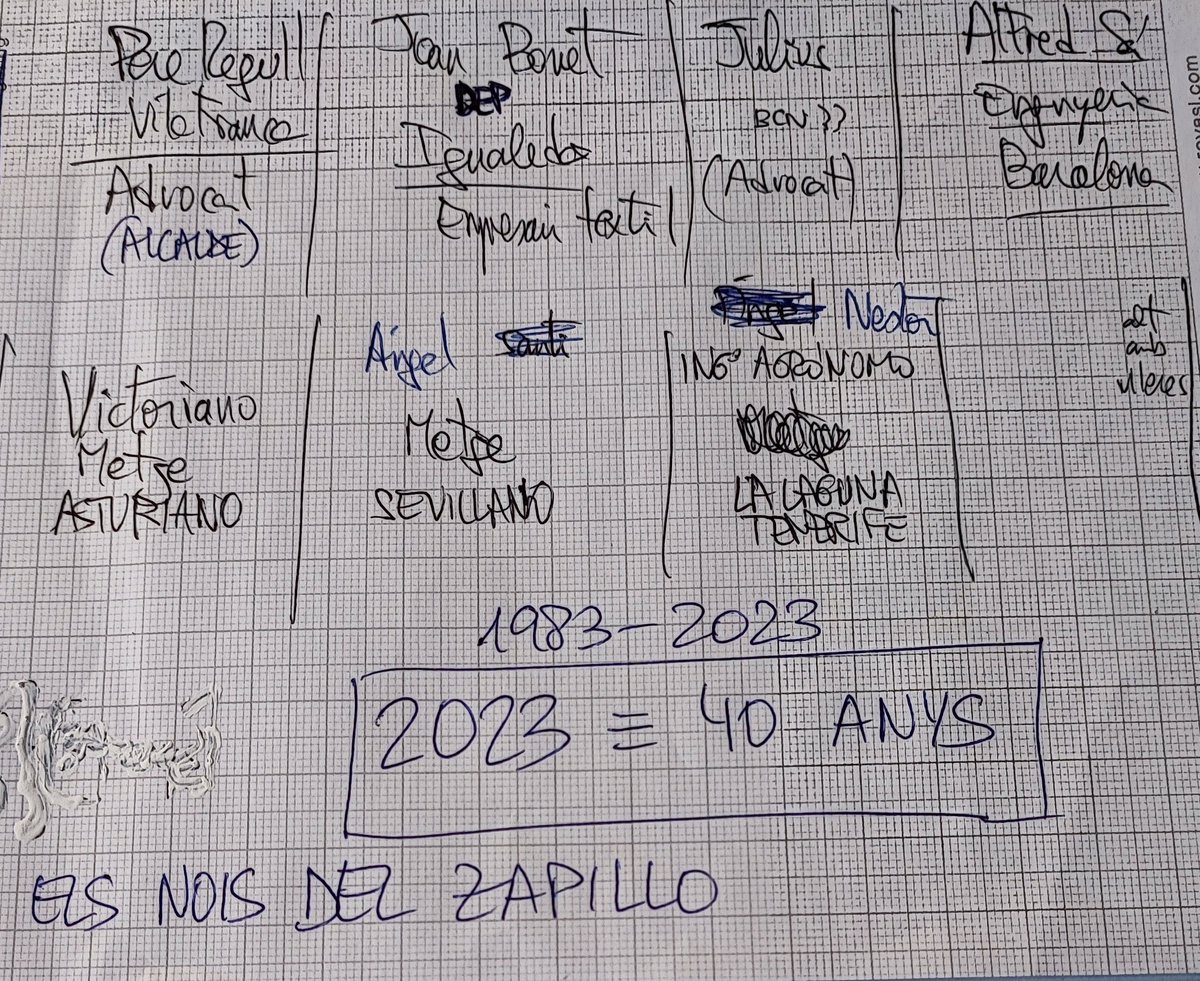 Pere Regull
Vilafranca
Advocat
(ALCALDE)
Joan Bonet
DEP
Igualada
Empresari textil
Julius
BCN ??
(Advocat)
Alfred Sá
Enginyeria
Barcelona
Victoriano
Metge
ASTURIANO
Ángel
Metge
SEVILLANO
Nestor
INGº AGRÓNOMO
LA LAGUNA
TENERIFE
alt
amb
ulleres
1983-2023
2023 = 40 ANYS
ELS NOIS DEL ZAPILLO